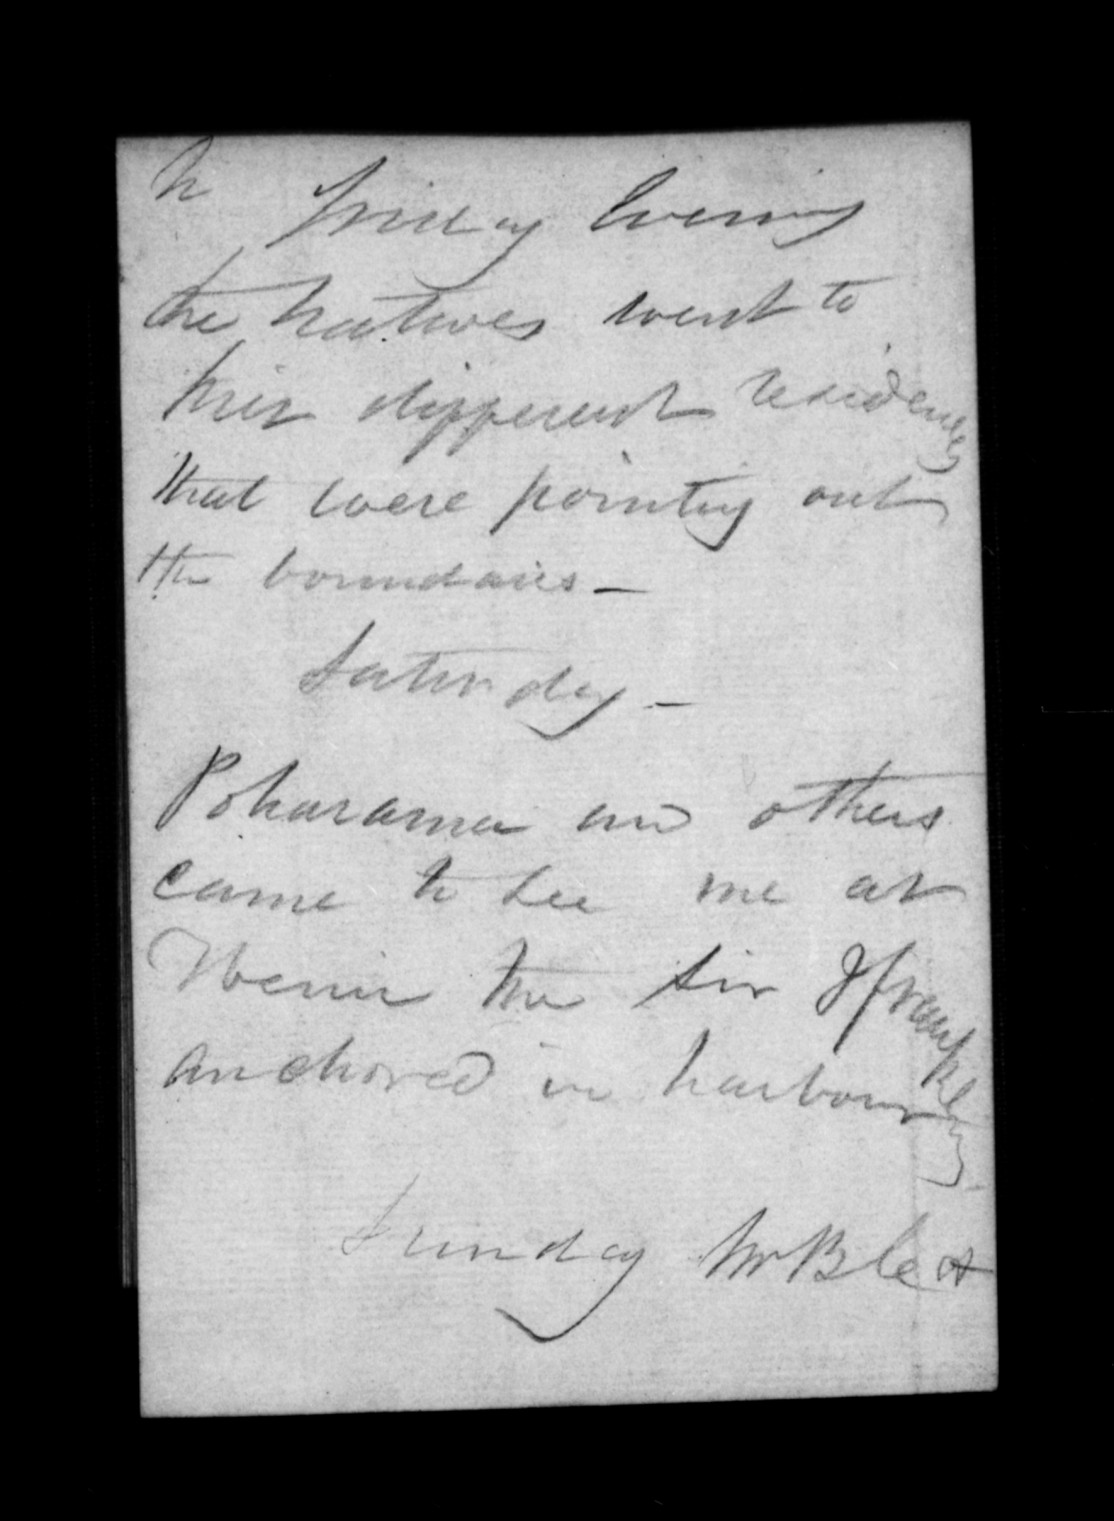 Friday Evening
the natives went to
their different residences
that were pointing out
the boundaries —
Saturday —
Poharama and others
came to see me at
the Sir J Franklin
anchored in harbour
Sunday Mr B le